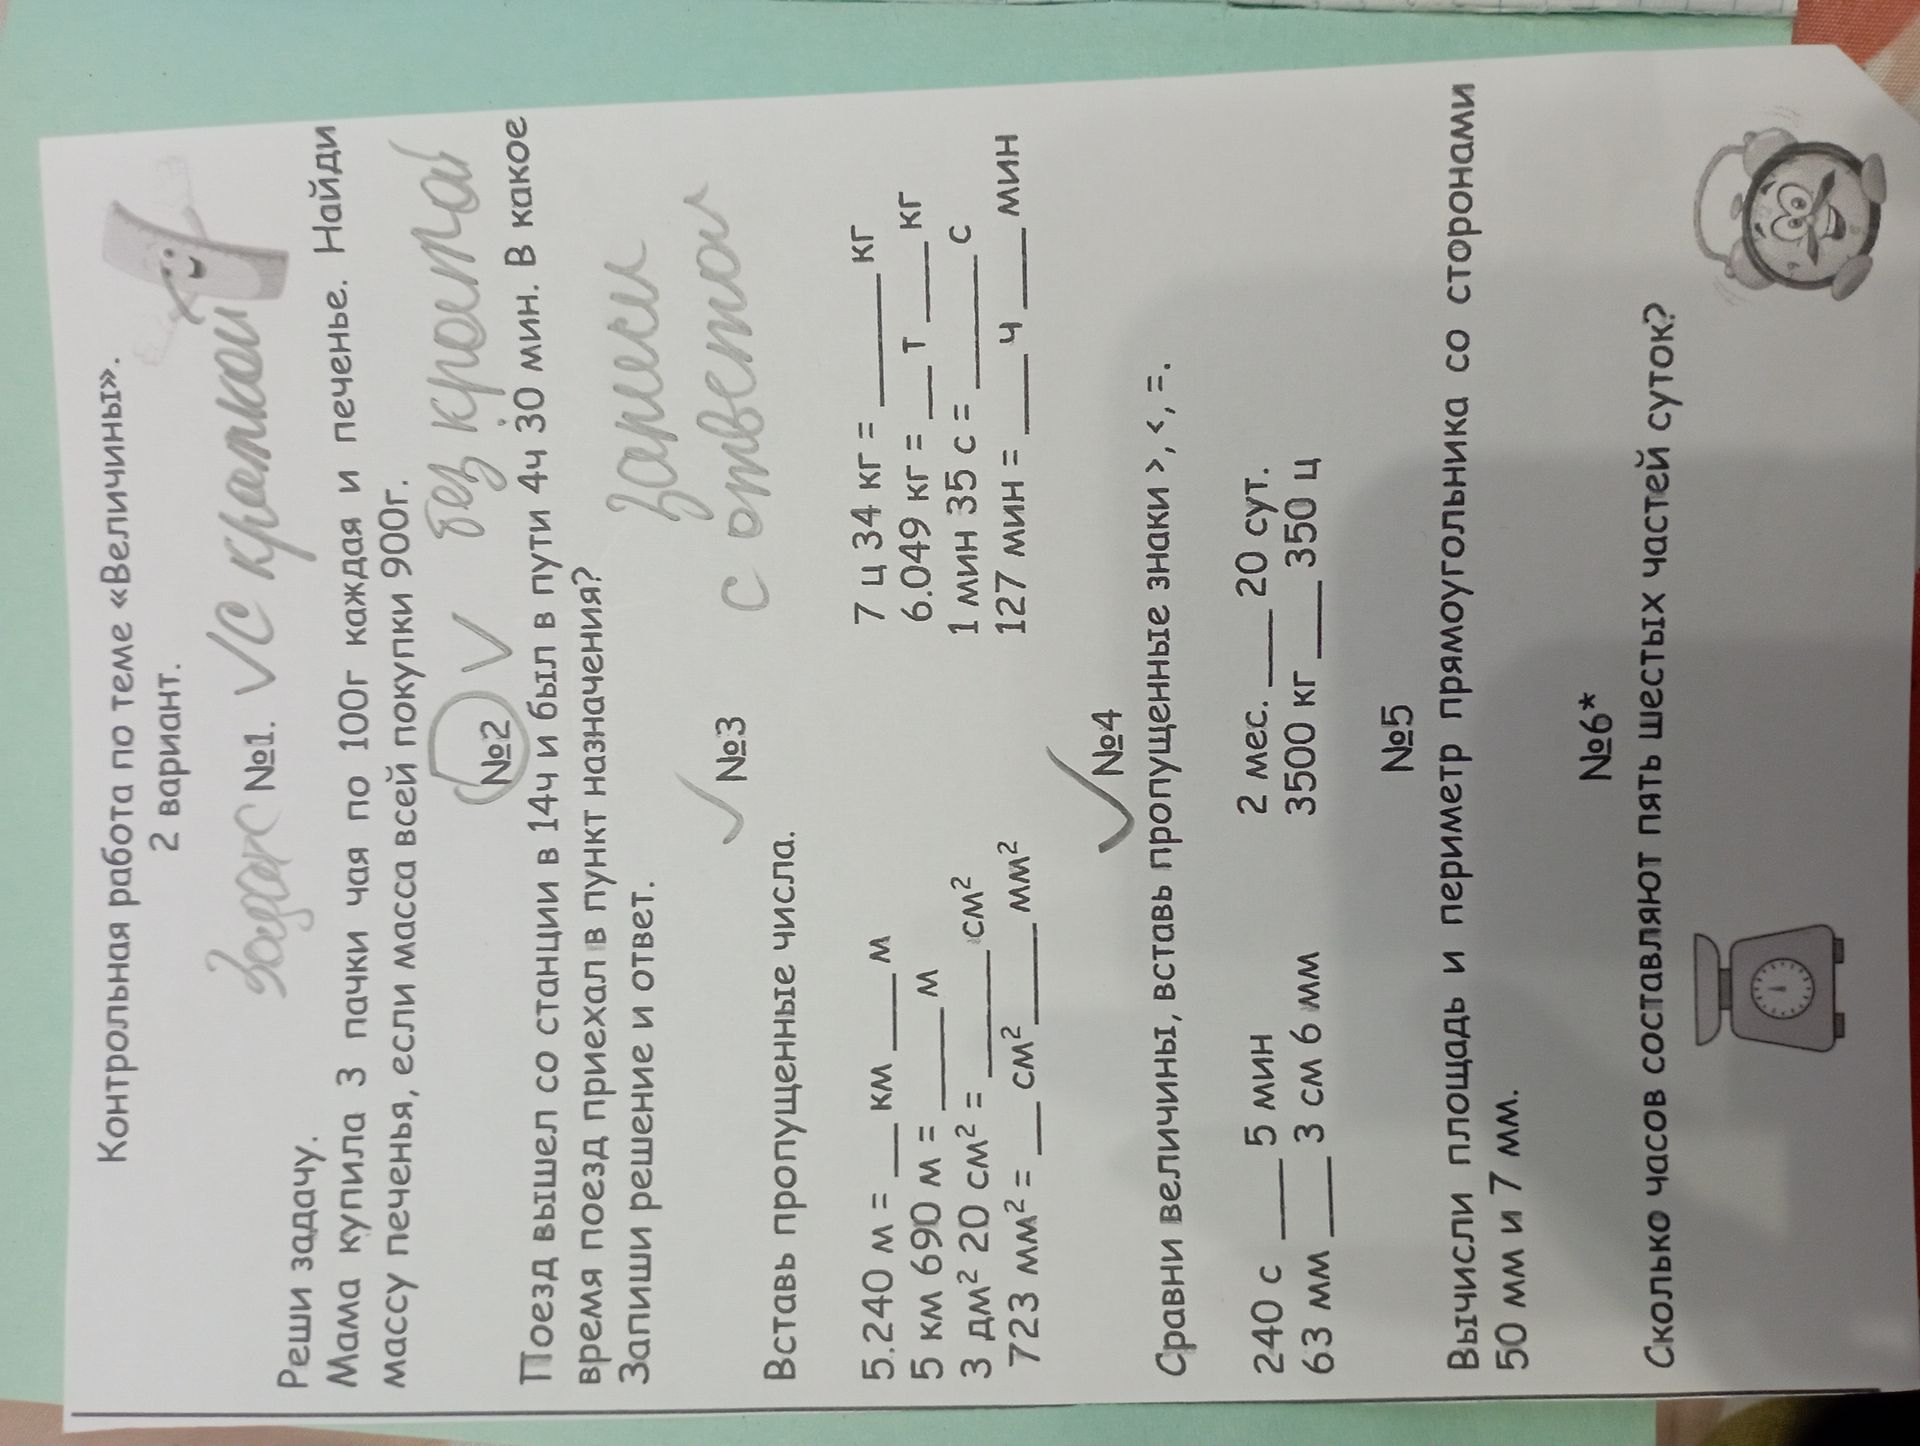 Контрольная работа по теме «Величины».
2 вариант.
№1. С краткой
Реши задачу.
Мама купила 3 пачки чая по 100г каждая и печенье. Найди
массу печенья, если масса всей покупки 900г.
№2 без кратой
Поезд вышел со станции в 14ч и был в пути 4ч 30 мин. В какое
время поезд приехал в пункт назначения?
Запиши решение и ответ.
записи
с ответом
№3
Вставь пропущенные числа.
5.240 м = ___ км ____ м 7 ц 34 кг = ______ кг
5 км 690 м = _____ м 6.049 кг = ___ т ____ кг
3 дм² 20 см² = ______ см² 1 мин 35 с = ______ с
723 мм² = ___ см² _____ мм² 127 мин = ____ ч ____ мин
№4
Сравни величины, вставь пропущенные знаки >, <, =.
240 с ____ 5 мин 2 мес. ____ 20 сут.
63 мм ____ 3 см 6 мм 3500 кг ____ 350 ц
№5
Вычисли площадь и периметр прямоугольника со сторонами
50 мм и 7 мм.
№6*
Сколько часов составляют пять шестых частей суток?